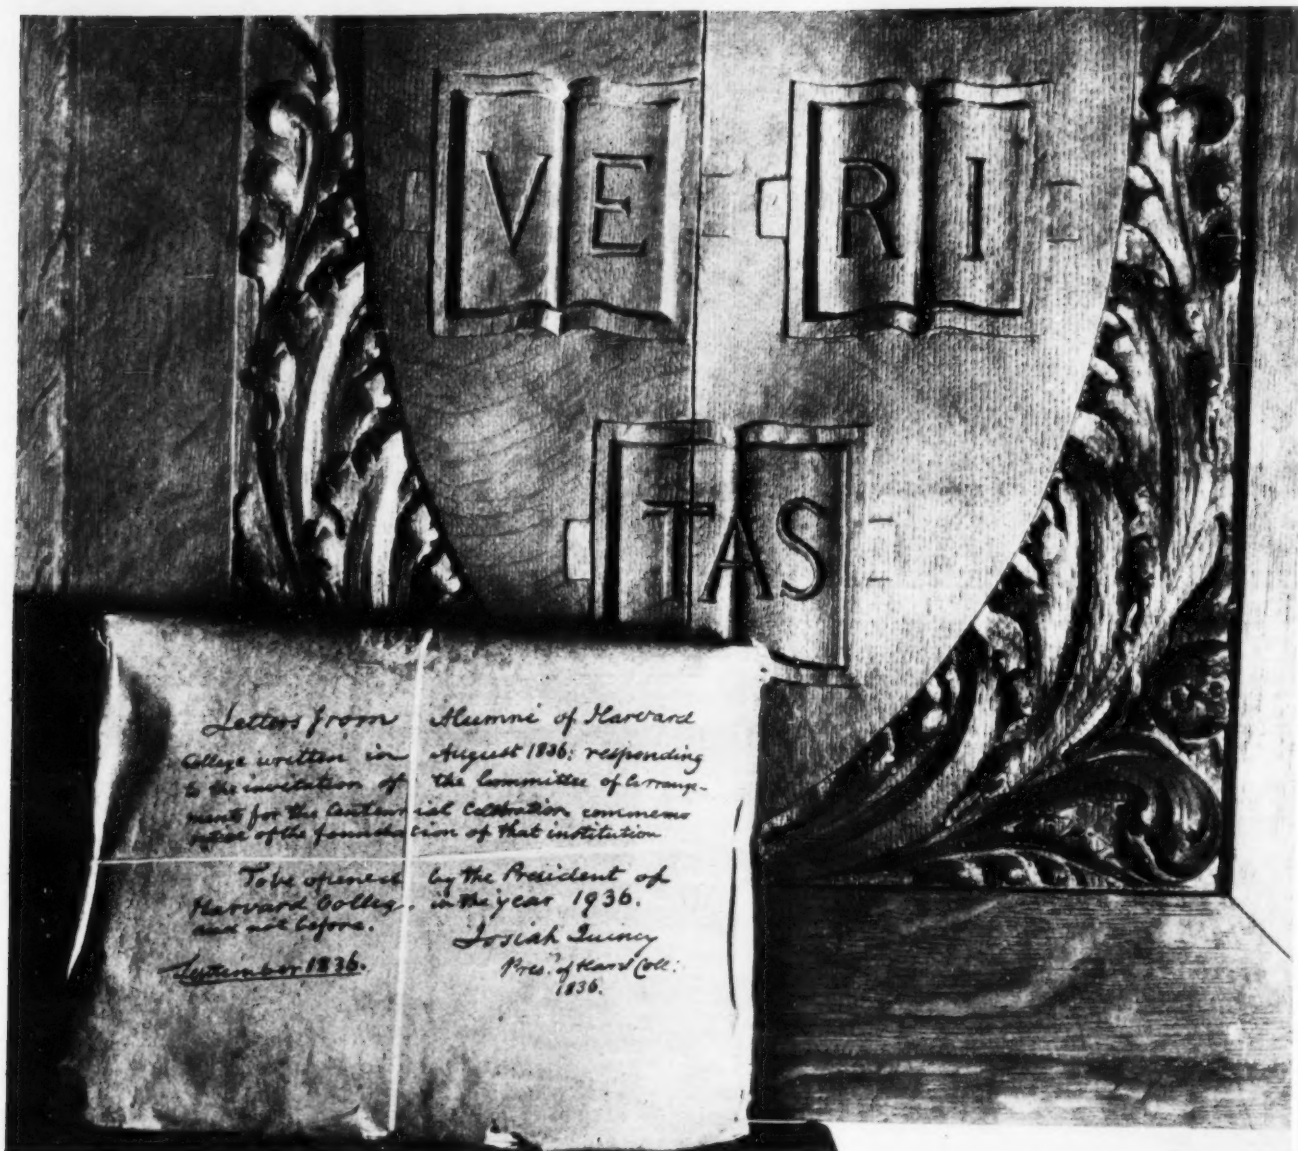 VE RI
TAS
Letters from Alumni of Harvard
College written in August 1836; responding
to the invitation of the Committee of Arrange-
ments for the Centennial Celebration commemo
rative of the foundation of that institution
To be opened by the President of
Harvard College in the year 1936.
and not before.
Josiah Quincy
September 1836.
Pres.t of Harvd Coll:
1836.